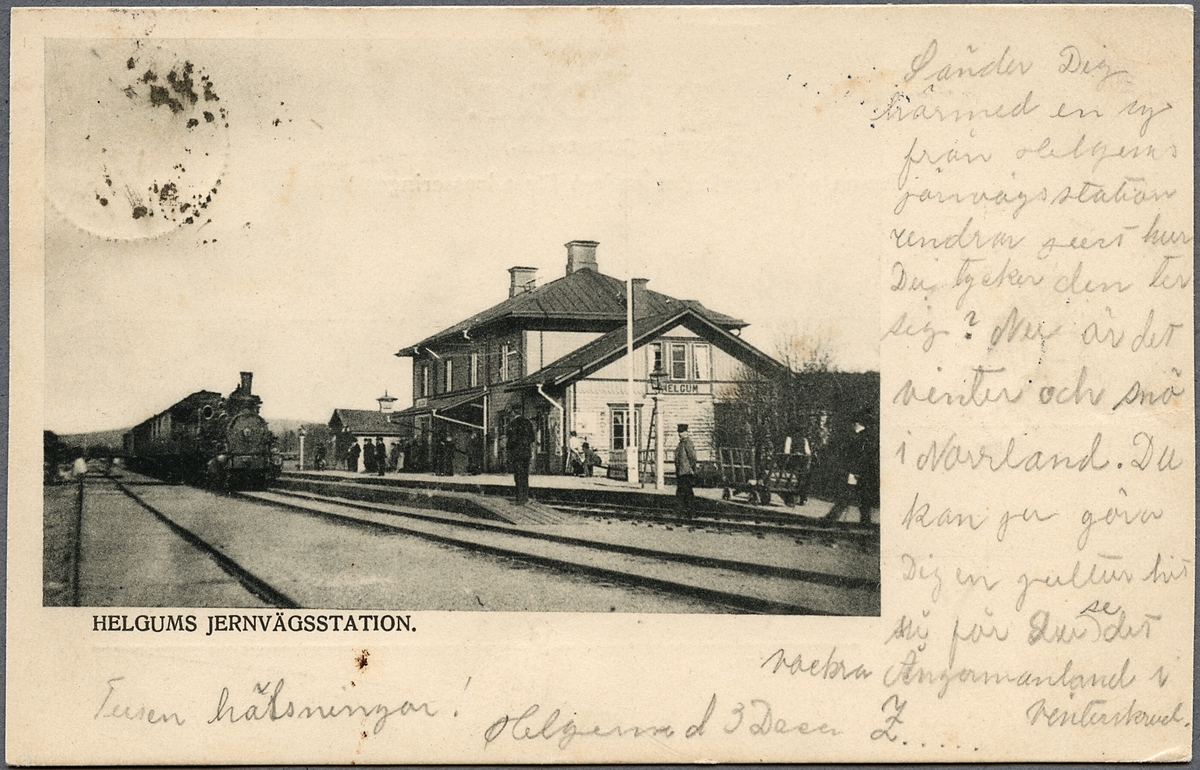 HELGUM
HELGUMS JERNVÄGSSTATION.
Sänder Dig
härmed en vy
från Helgums
järnvägsstation
hur
Du tycker den ter
sig? Nu är det
vinter och snö
i Norrland. Du
kan ju göra
Dig en hit
nu för se det
vackra Ångermanland i
vinterskrud.
Tusen hälsningar!
Helgum d 3 Decem Z......